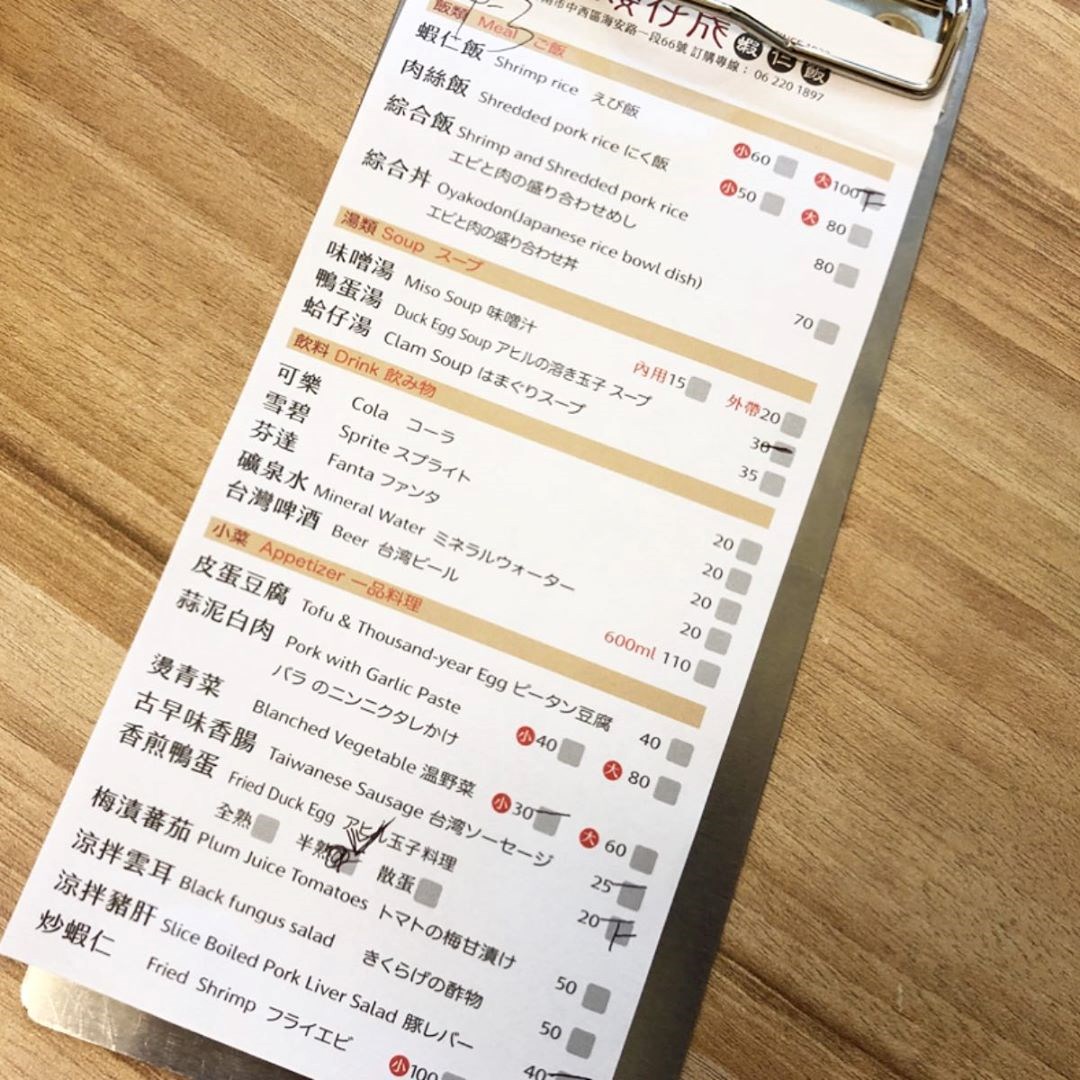 蝦仁飯
南市中西區海安路一段66號 訂購專線： 06 220 1897
飯類 Meal ご飯
蝦仁飯 Shrimp rice えび飯 小60 大100
肉絲飯 Shredded pork rice にく飯 小50 大 80
綜合飯 Shrimp and Shredded pork rice 80
エビと肉の盛り合わせめし
綜合丼 Oyakodon(Japanese rice bowl dish) 70
エビと肉の盛り合わせ丼
湯類 Soup スープ
味噌湯 Miso Soup 味噌汁 內用15 外帶20
鴨蛋湯 Duck Egg Soup アヒルの溶き玉子 スープ 30
蛤仔湯 Clam Soup はまぐりスープ 35
飲料 Drink 飲み物
可樂 Cola コーラ 20
雪碧 Sprite スプライト 20
芬達 Fanta ファンタ 20
礦泉水 Mineral Water ミネラルウォーター 20
台灣啤酒 Beer 台湾ビール 600ml 110
小菜 Appetizer 一品料理
皮蛋豆腐 Tofu & Thousand-year Egg ピータン豆腐 40
蒜泥白肉 Pork with Garlic Paste 小40 大 80
バラ のニンニクタレかけ
燙青菜 Blanched Vegetable 温野菜 小30 大 60
古早味香腸 Taiwanese Sausage 台湾ソーセージ 25
香煎鴨蛋 Fried Duck Egg アヒル玉子料理 20
全熟 半熟 散蛋
梅漬蕃茄 Plum Juice Tomatoes トマトの梅甘漬け 50
涼拌雲耳 Black fungus salad きくらげの酢物 50
涼拌豬肝 Slice Boiled Pork Liver Salad 豚レバー 40
炒蝦仁 Fried Shrimp フライエビ 小100